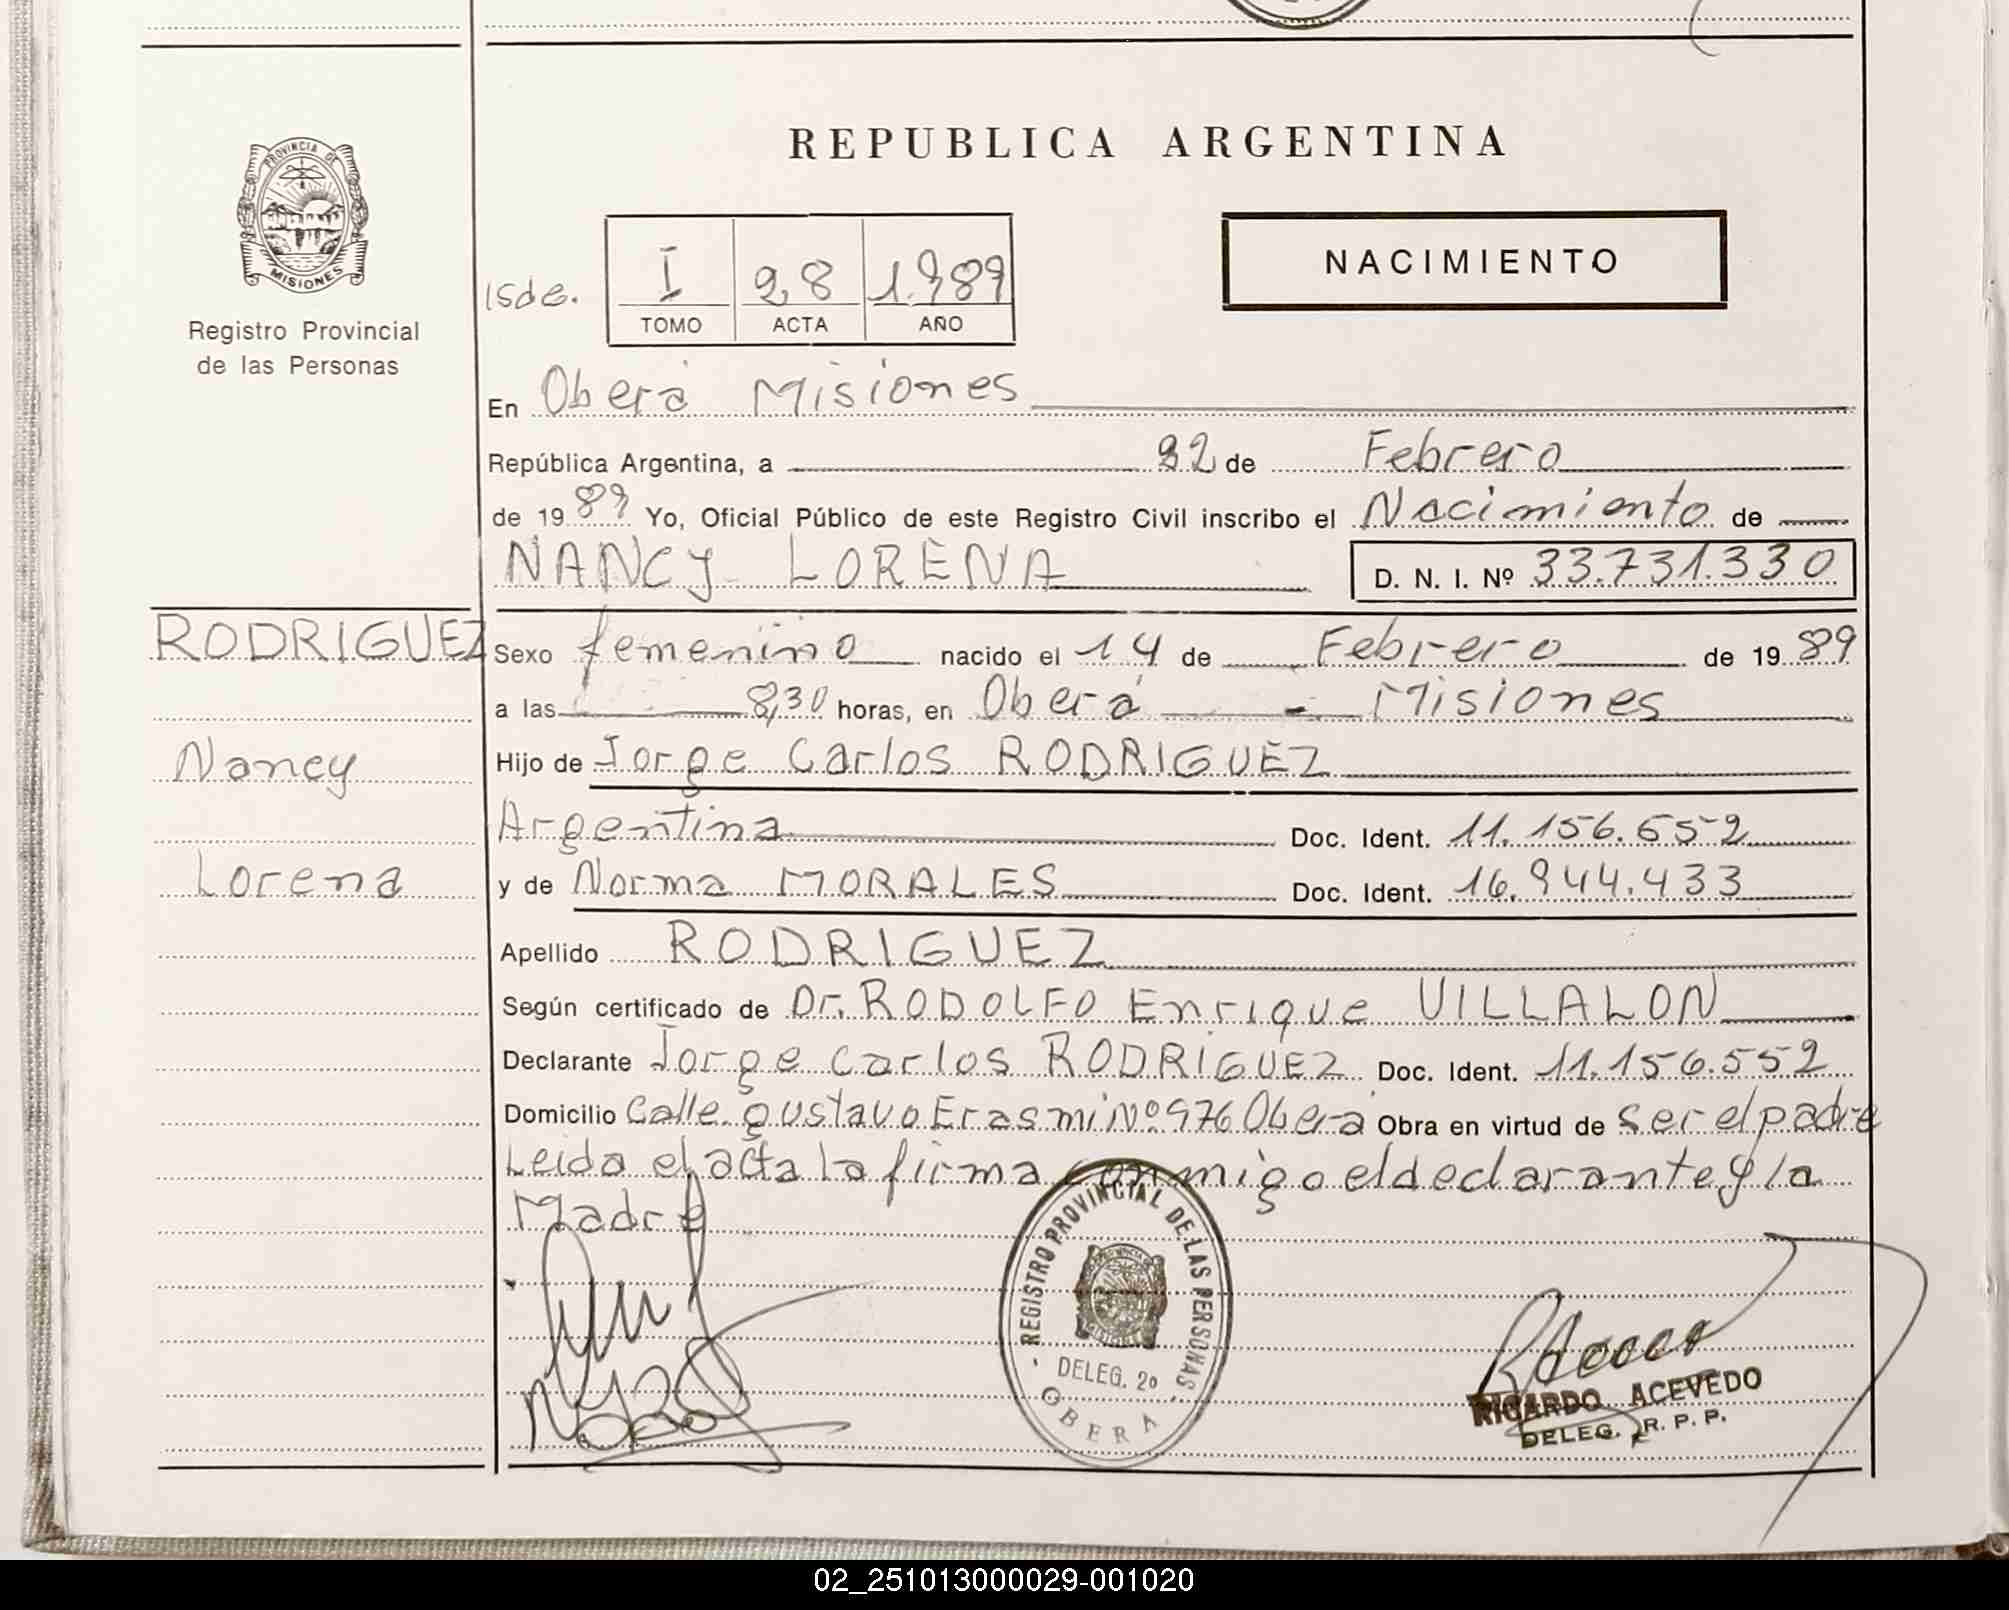 REPUBLICA ARGENTINA
PROVINCIA DE
MISIONES
Registro Provincial
de las Personas
NACIMIENTO
Isde. I 28 1.989
TOMO ACTA AÑO
En Oberá Misiones
República Argentina, a 22 de Febrero
de 1989 Yo, Oficial Público de este Registro Civil inscribo el Nacimiento de
NANCY LORENA D. N. I. Nº 33.731.330
RODRIGUEZ
Nancy
Lorena
Sexo femenino nacido el 14 de Febrero de 1989
a las 8,30 horas, en Oberá - Misiones
Hijo de Jorge Carlos RODRIGUEZ
Argentina Doc. Ident. 11.156.552
y de Norma MORALES Doc. Ident. 16.944.433
Apellido RODRIGUEZ
Según certificado de Dr. RODOLFO Enrique VILLALON
Declarante Jorge Carlos RODRIGUEZ Doc. Ident. 11.156.552
Domicilio Calle gustavo Erasmi Nº 976 Oberá Obra en virtud de ser el padre
Leida el acta la firma conmigo el declarante y la
Madre
REGISTRO PROVINCIAL DE LAS PERSONAS
DELEG. 2º
OBERA
RICARDO ACEVEDO
DELEG. R. P. P.
02_251013000029-001020